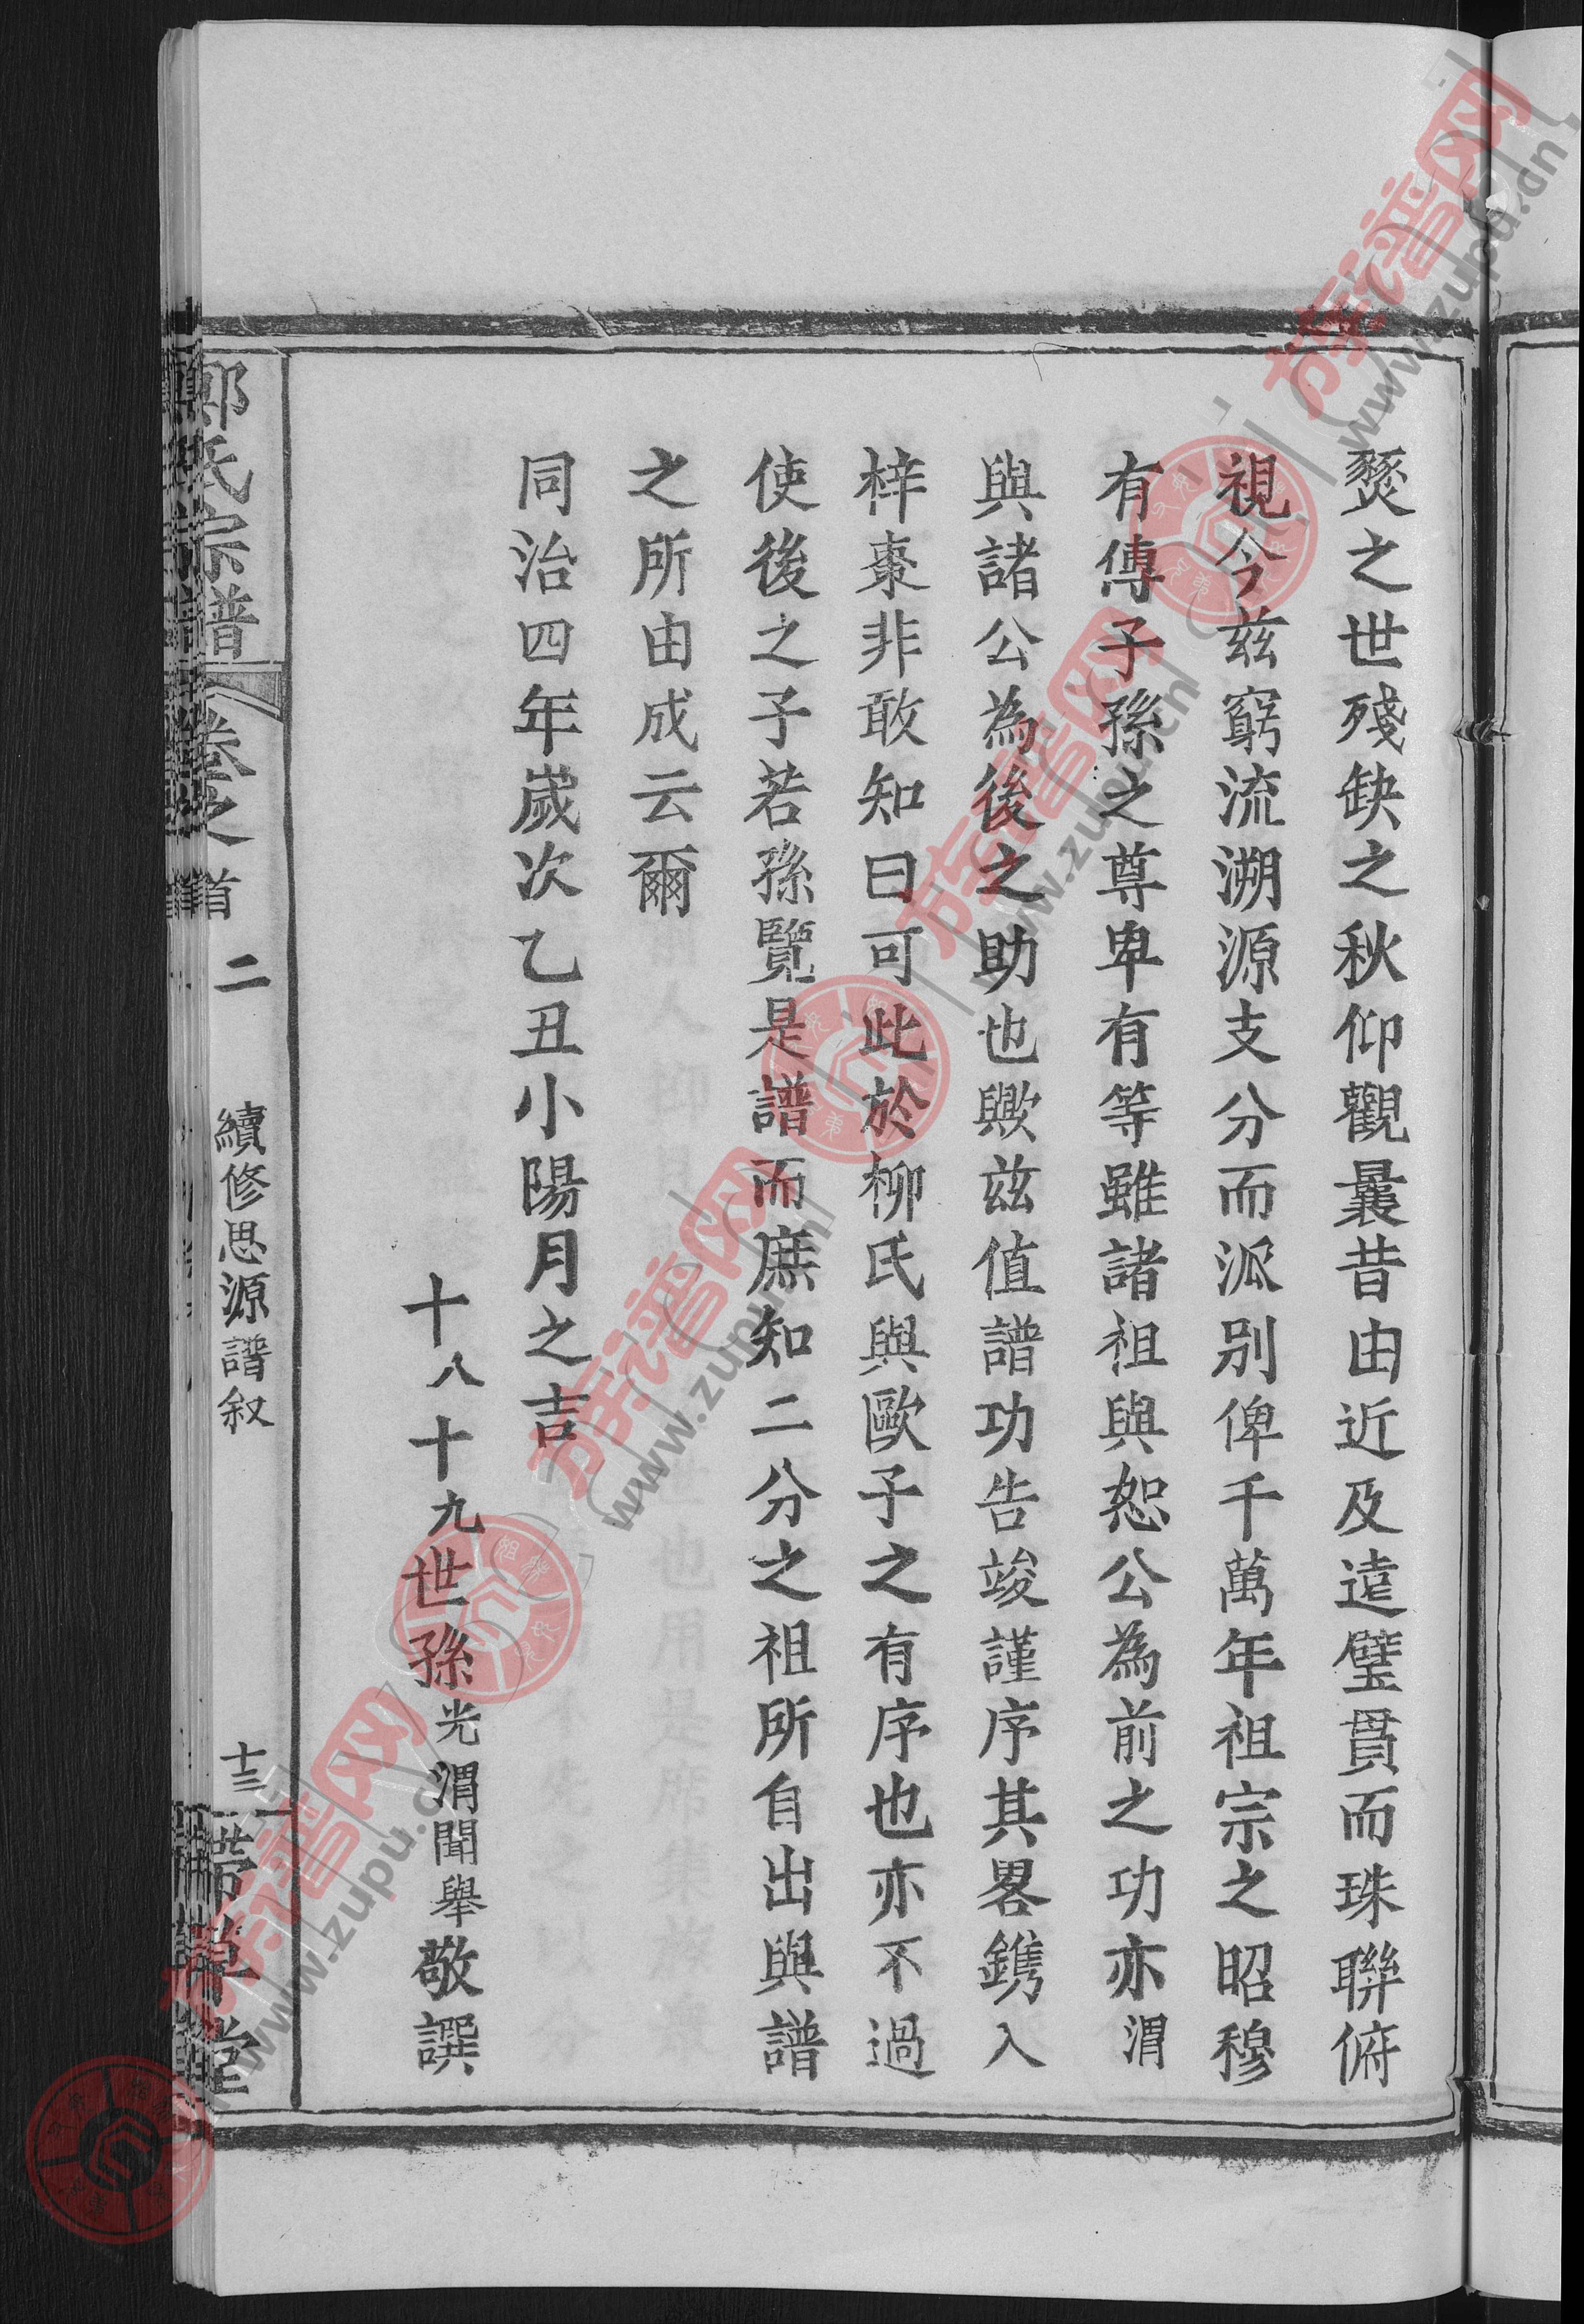 燹之世殘缺之秋仰觀曩昔由近及遠璧貫而珠聯俯
視今茲窮流溯源支分而派別俾千萬年祖宗之昭穆
有傳子孫之尊卑有等雖諸祖與恕公為前之功亦渭
與諸公為後之助也歟茲值譜功告竣謹序其畧鐫入
梓棗非敢知曰可此於柳氏與歐子之有序也亦不過
使後之子若孫覽是譜而庶知二分之祖所自出與譜
之所由成云爾
同治四年歲次乙丑小陽月之吉
十八十九世孫光渭聞舉敬譔
氏宗譜 卷之首 二 續修思源譜叙 十三 帶草堂
族谱网 www.zupu.cn
族谱网 www.zupu.cn
族谱网 www.zupu.cn
族谱网 www.zupu.cn